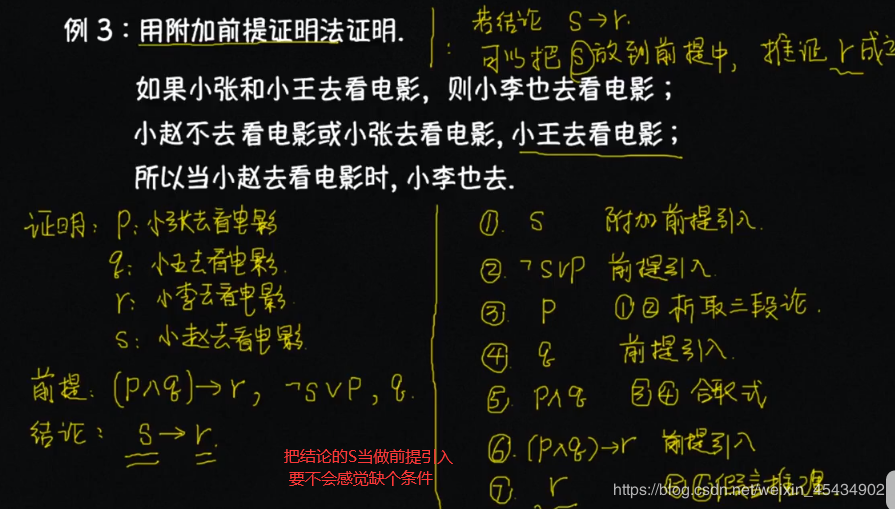 例 3：用附加前提证明法证明.
若结论 S→r.
: 可以把 S 放到前提中，推证 r 成立
如果小张和小王去看电影，则小李也去看电影；
小赵不去看电影或小张去看电影, 小王去看电影；
所以当小赵去看电影时, 小李也去.
证明：p：小张去看电影
q：小王去看电影.
r：小李去看电影.
s：小赵去看电影.
前提：(p∧q)→r，¬s∨p，q.
结论：s→r.
把结论的S当做前提引入
要不会感觉缺个条件
①. s 附加前提引入.
②. ¬s∨p 前提引入.
③. p ①②析取三段论.
④. q 前提引入.
⑤. p∧q ③④合取式
⑥. (p∧q)→r 前提引入
⑦. r 假言推理
https://blog.csdn.net/weixin_45434902